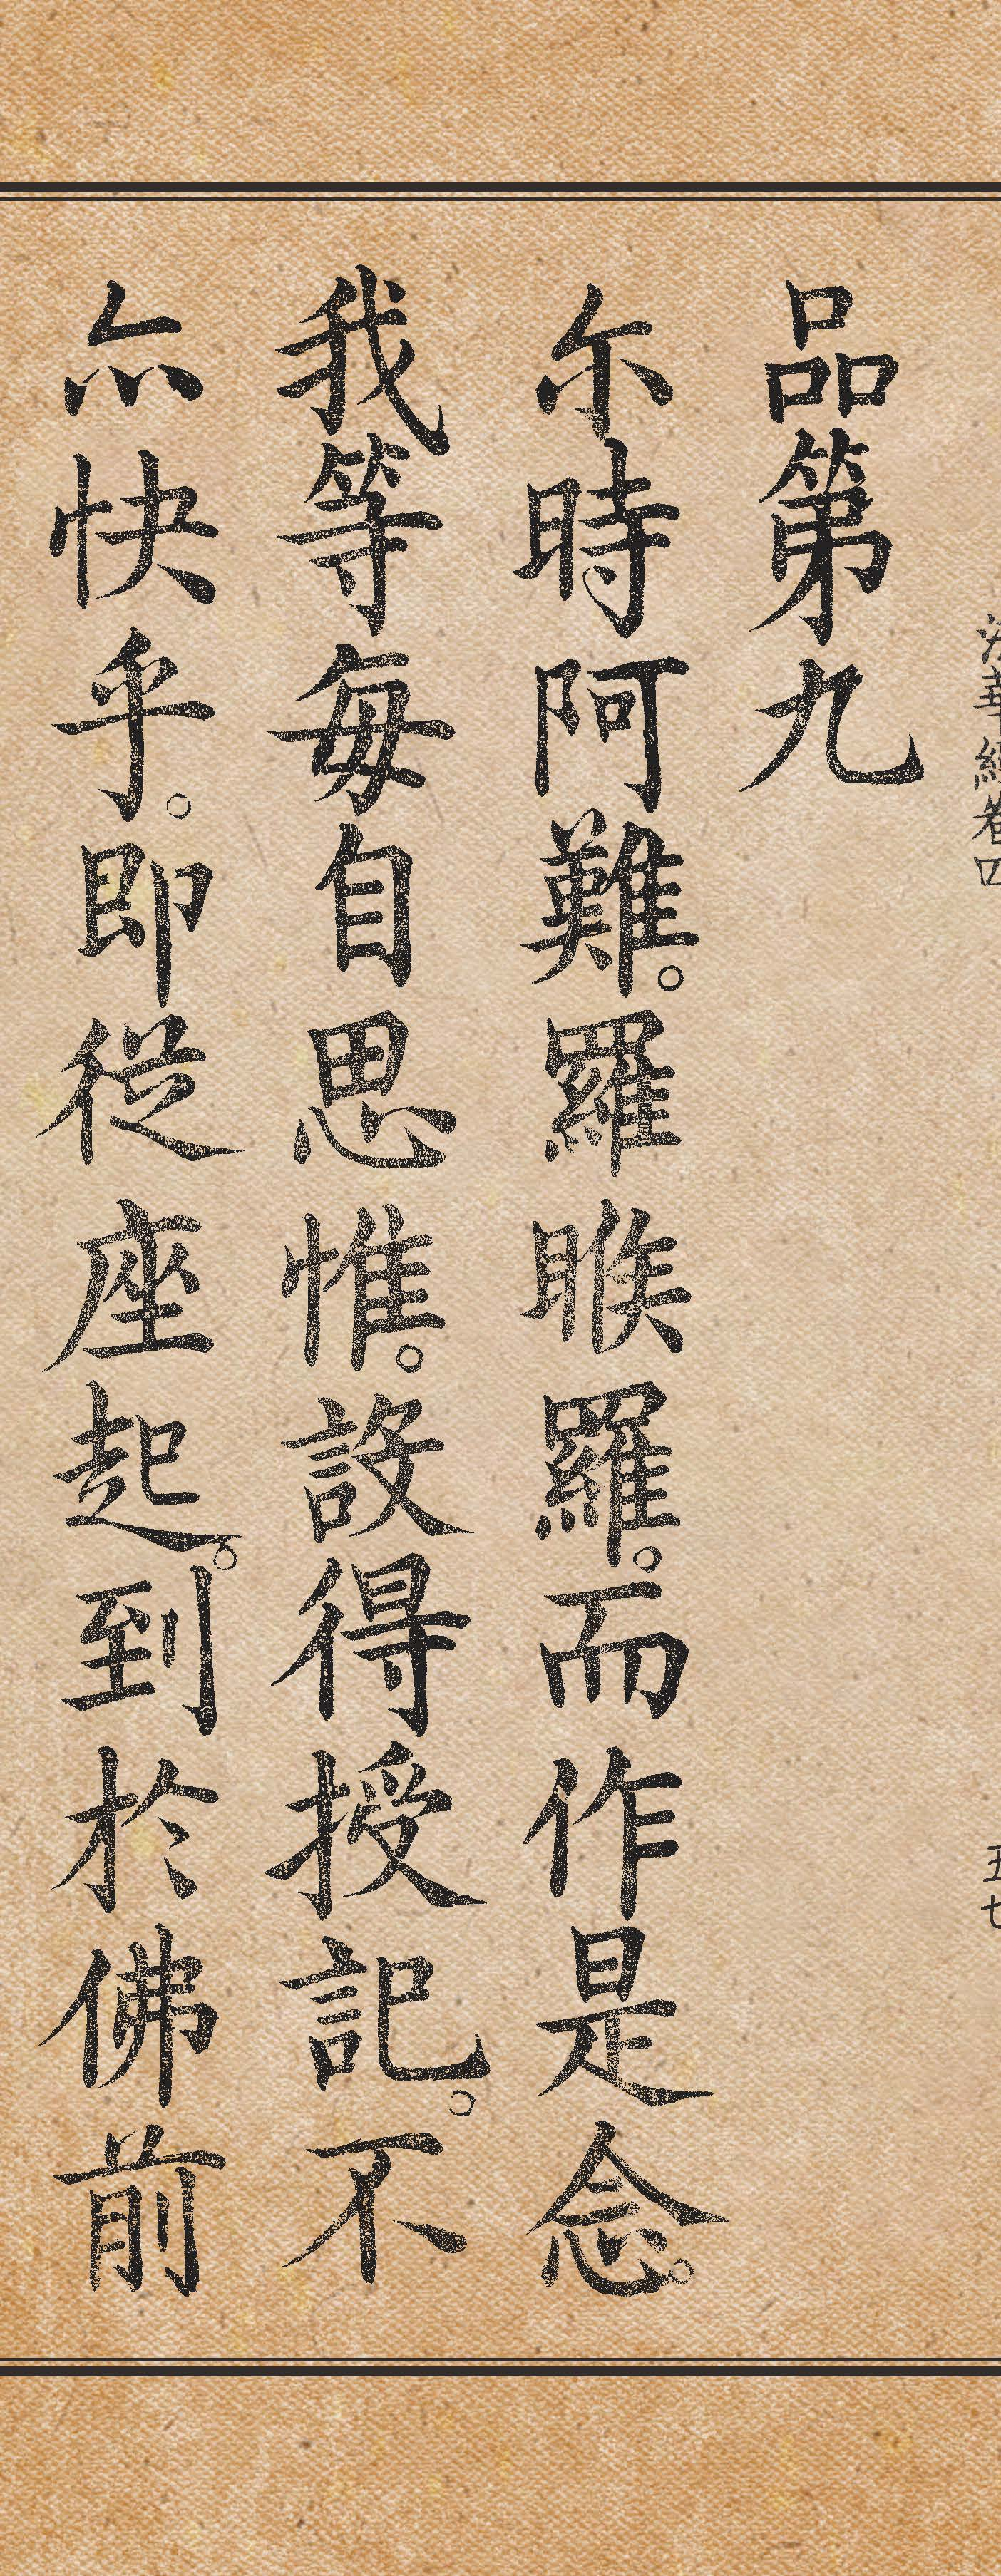 法華經卷四
五七
品第九
尒時阿難。羅睺羅。而作是念。
我等每自思惟。設得授記。不
亦快乎。即從座起。到於佛前